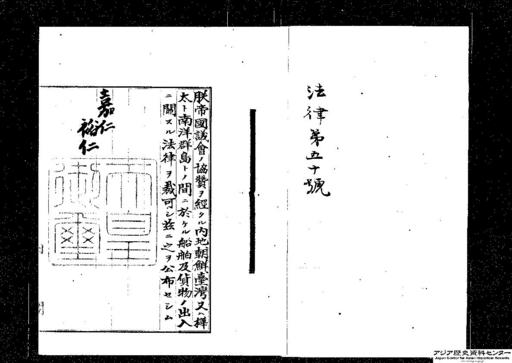 法律第五十號
朕帝國議會ノ協贊ヲ經タル内地朝鮮臺灣又ハ樺
太ト南洋群島トノ間ニ於ケル船舶及貨物ノ出入
ニ關スル法律ヲ裁可シ茲ニ之ヲ公布セシム
嘉仁
裕仁
天皇
御璽
アジア歴史資料センター
Japan Center for Asian Historical Records